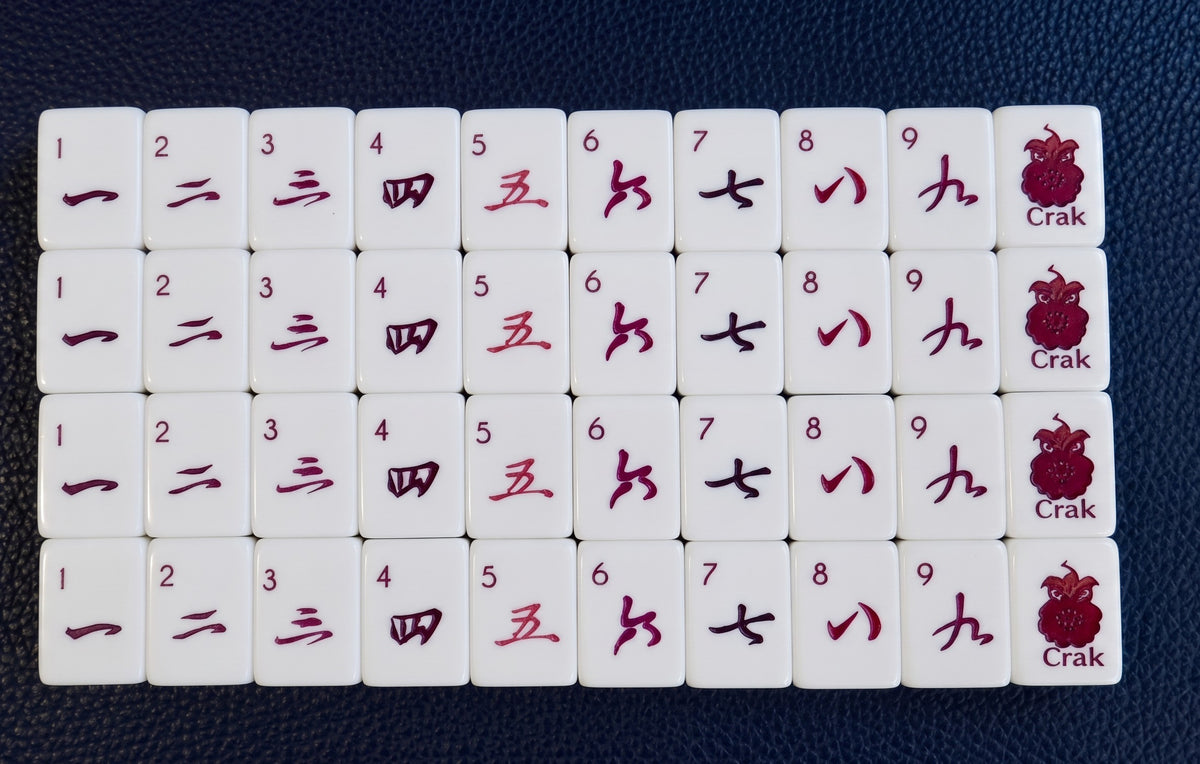 1 2 3 4 5 6 7 8 9
一 二 三 四 五 六 七 八 九 Crak
1 2 3 4 5 6 7 8 9
一 二 三 四 五 六 七 八 九 Crak
1 2 3 4 5 6 7 8 9
一 二 三 四 五 六 七 八 九 Crak
1 2 3 4 5 6 7 8 9
一 二 三 四 五 六 七 八 九 Crak